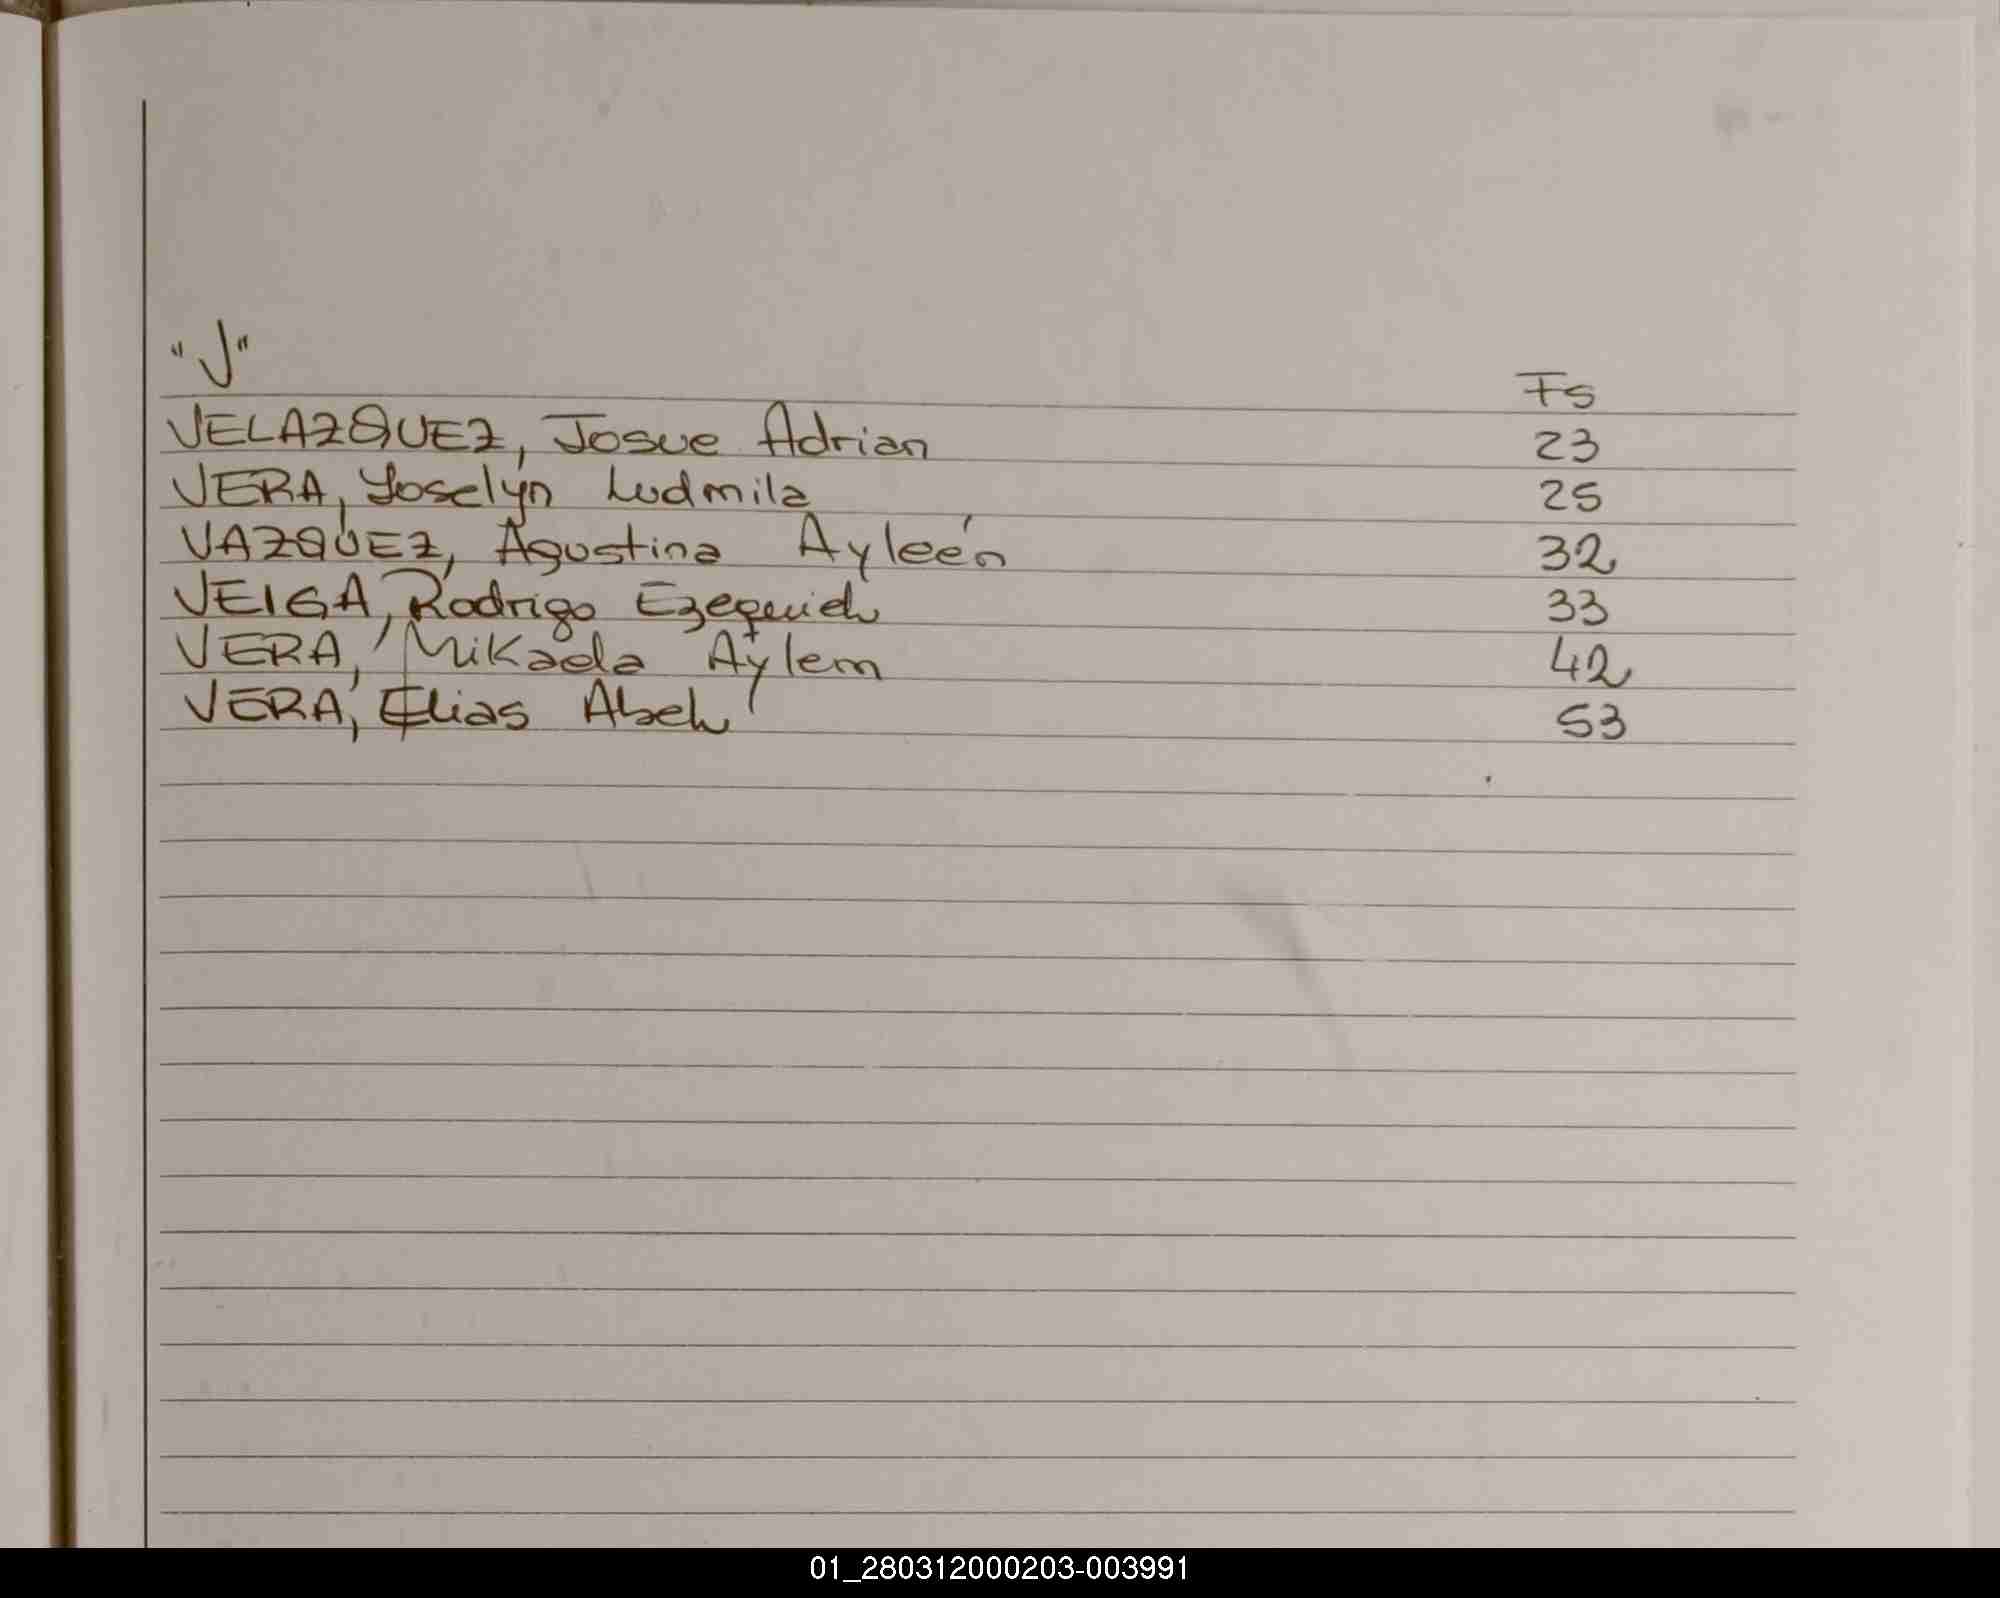 "V"
Fs
VELAZQUEZ, Josue Adrian 23
VERA, Yoselyn Ludmila 25
VAZQUEZ, Agustina Ayleén 32
VEIGA, Rodrigo Ezequiel 33
VERA, Mikaela Aylem 42
VERA, Elias Abel 53
01_280312000203-003991